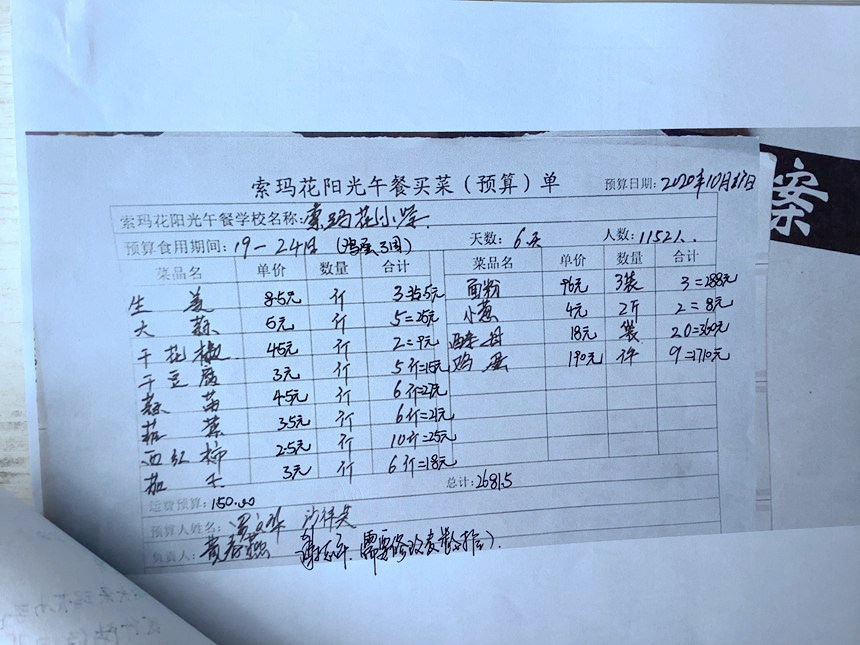 案
索玛花阳光午餐买菜（预算）单
预算日期：2020年10月17日
索玛花阳光午餐学校名称：索玛花小学.
预算食用期间：19－24日（鸡蛋3周） 天数：6天 人数：115人.
菜品名 单价 数量 合计 菜品名 单价 数量 合计
生姜 8.5元 斤 面粉 96元 3袋 3=288元
大蒜 5元 斤 5=25元 小葱 4元 2斤 2=8元
干花椒 45元 斤 2=9元 18元 袋 20=360元
干豆腐 3元 斤 5斤=15元 鸡蛋 190元 件 9=1710元
蒜苗 4.5元 斤 6斤=27元
3.5元 斤 6斤=21元
西红柿 2.5元 斤 10斤=25元
茄子 3元 斤 6斤=18元
总计：2681.5
运费预算：150.00
预算人姓名：
负责人：黄春燕